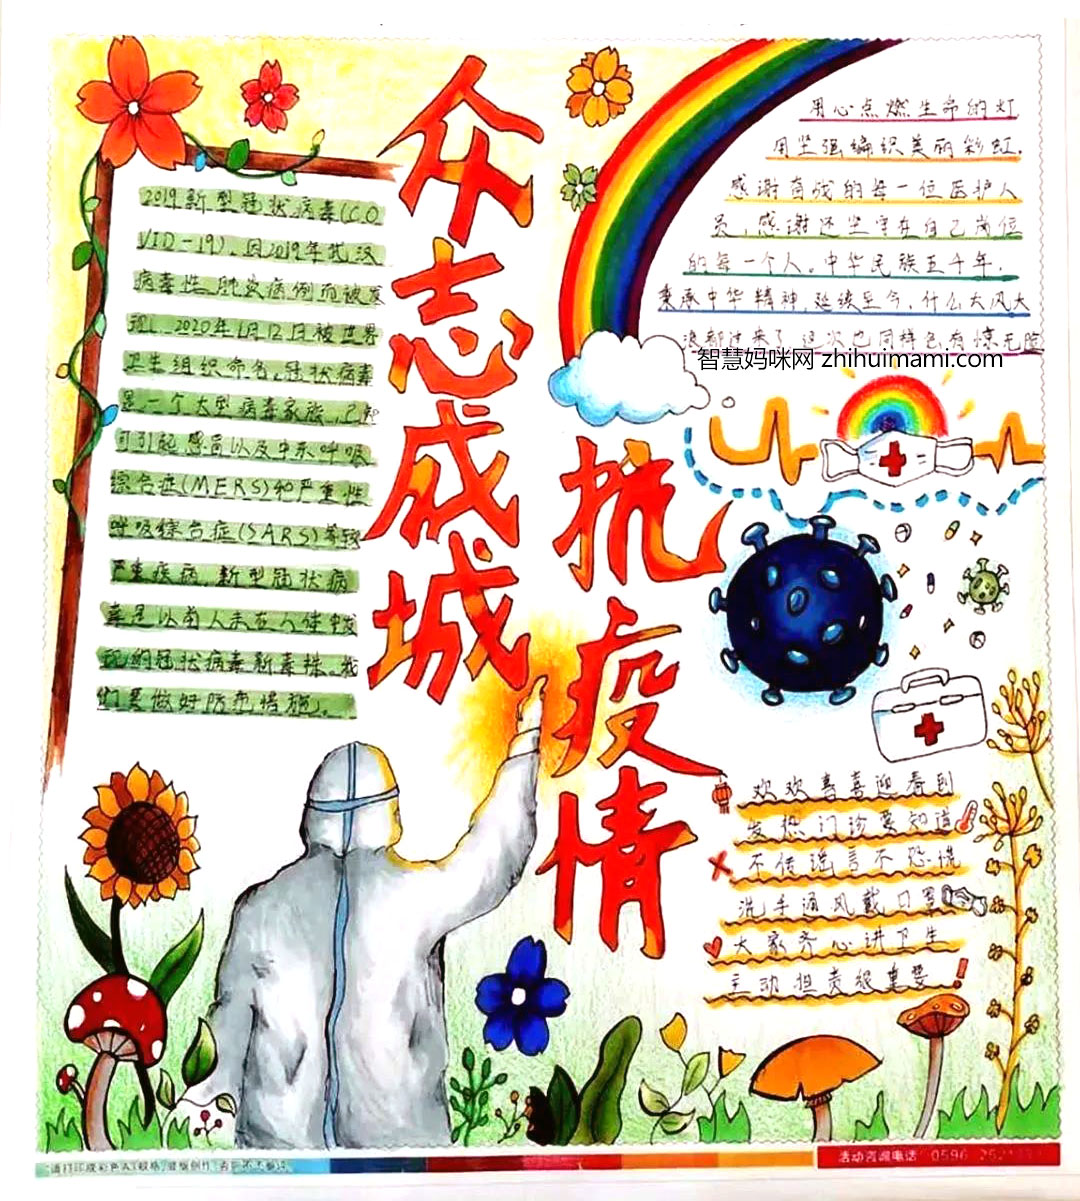 众志成城
抗疫情
2019新型冠状病毒(CO
VID-19),因2019年武汉
病毒性肺炎病例而被发
现,2020年1月12日被世界
卫生组织命名,冠状病毒
是一个大型病毒家族,已知
可引起感冒以及中东呼吸
综合症(MERS)和严重性
呼吸综合症(SARS)等较
严重疾病,新型冠状病
毒是以前人未在人体中发
现的冠状病毒新毒株,我
们要做好防范措施。
用心点燃生命的灯
用坚强编织美丽彩虹.
感谢奋战的每一位医护人
员,感谢还坚守在自己岗位
的每一个人。中华民族五千年,
秉承中华精神,延续至今,什么大风大
浪都过来了 这次也同样会有惊无险
智慧妈咪网 zhihuimami.com
欢欢喜喜迎春到
发热门诊要知道
不传谣言不恐慌
洗手通风戴口罩
大家齐心讲卫生
主动担责很重要
活动咨询电话 0596